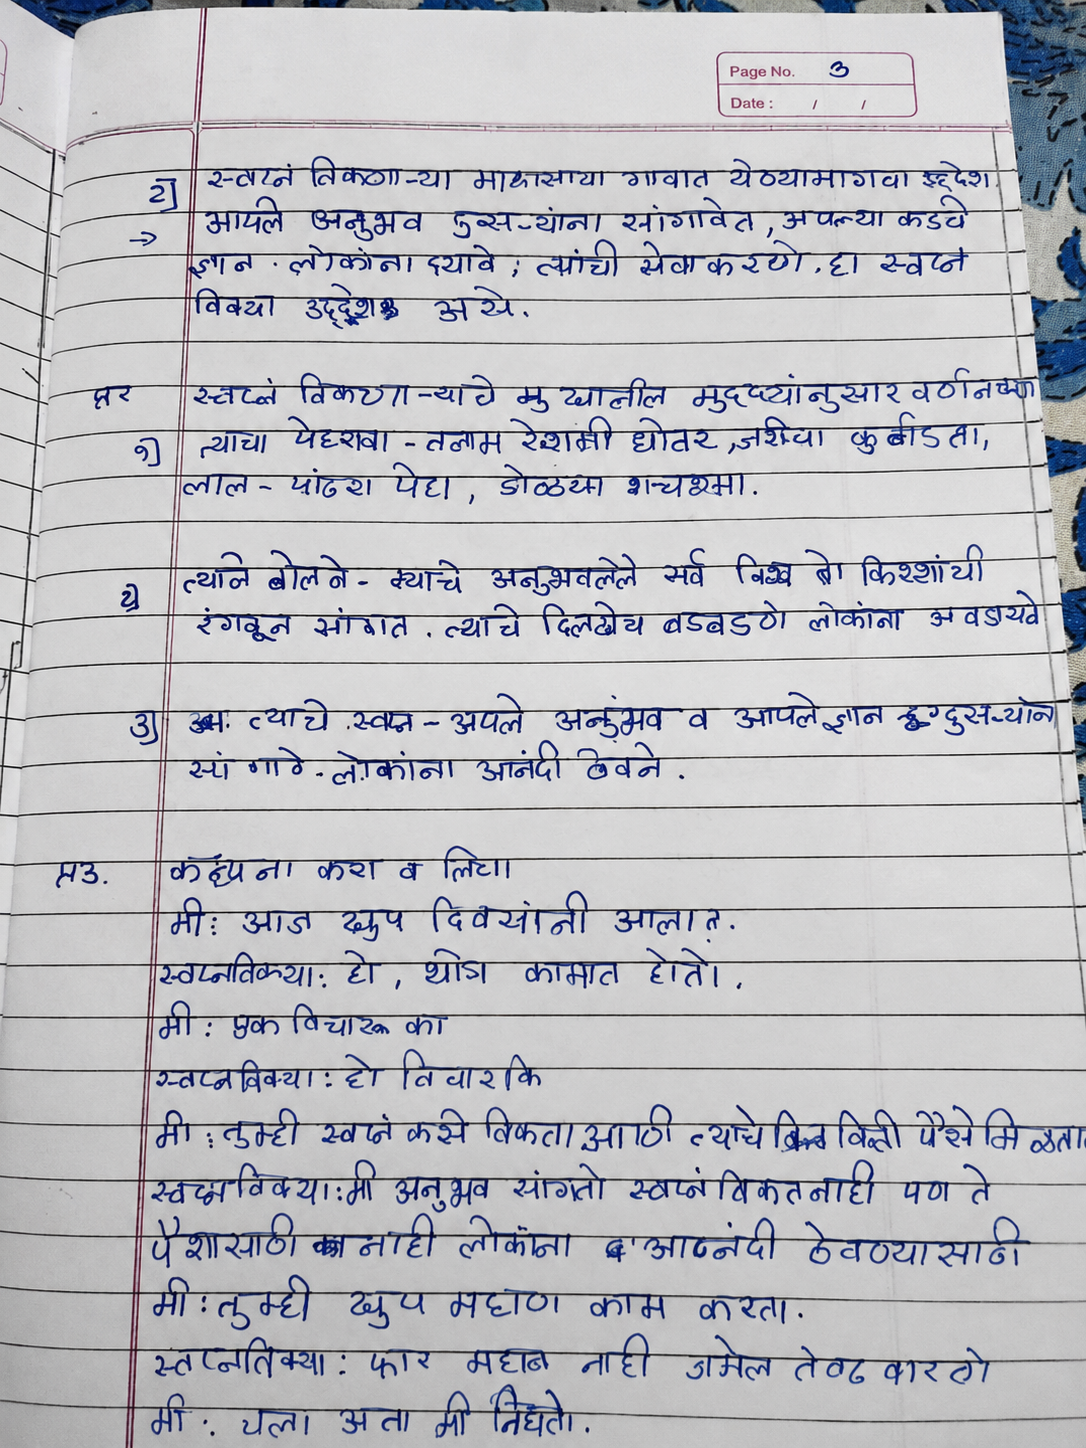 Page No. 3
Date : / /
2] स्वप्नं विकणाऱ्या माणसाचा गावात येण्यामागचा उद्देश.
→ आपले अनुभव दुसऱ्यांना सांगावेत, अपल्या कडचे
ज्ञान . लोकांना द्यावे, त्यांची सेवा करणे. हा स्वप्न
विक्या उद्देश असे.
प्र२ स्वप्नं विकणाऱ्याचे मुखातील मुद्द्यांनुसार वर्णन
१) त्याचा पेहरावा - तलाम रेशमी धोतर, जरीचा कुर्बाडता,
लाल - पांढरा पेहा, डोळ्या शचश्मा.
२) त्याने बोलने - त्याचे अनुभवलेले सर्व विश्व तो किश्शांची
रंगवून सांगत. त्याचे दिलखेच बडबडणे लोकांना अवडायचे
3) त्याचे स्वप्न - अपले अनुभव व आपले ज्ञान दुसऱ्यांना
सांगाणे. लोकांना आनंदी ठेवने.
प्र3. कल्पना करा व लिहा
मी: आज खुप दिवसांनी आलात.
स्वप्नविक्या: हो, थोडा कामात होतो.
मी: एक विचारू का
स्वप्नविक्या: हो विचार कि
मी: तुम्ही स्वप्नं कसे विकता आठी त्याचे किती पैसे मिळतात
स्वप्नविक्या: मी अनुभव सांगतो स्वप्नं विकत नाही पण ते
पैशासाठी नाही लोकांना आनंदी ठेवण्यासाठी
मी: तुम्ही खुप महाण काम करता.
स्वप्नविक्या: फार महान नाही जमेल तेवढ करणे
मी: चला अता मी निघतो.